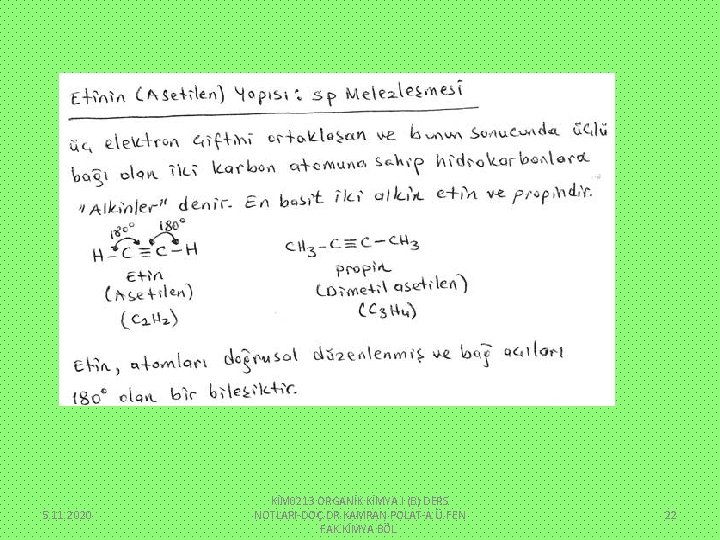 Etinin (Asetilen) Yapısı: sp Melezleşmesi
üç elektron çiftini ortaklaşan ve bunun sonucunda üçlü
bağı olan iki karbon atomuna sahip hidrokarbonlara
"Alkinler" denir. En basit iki alkin etin ve propindir.
180° 180°
H-C≡C-H
CH3-C≡C-CH3
Etin
(Asetilen)
(C2H2)
propin
(Dimetil asetilen)
(C3H4)
Etin, atomları doğrusal düzenlenmiş ve bağ açıları
180° olan bir bileşiktir.
5.11.2020
KİM0213 ORGANİK KİMYA I (B) DERS
NOTLARI-DOÇ.DR.KAMRAN POLAT-A.Ü.FEN
FAK.KİMYA BÖL
22